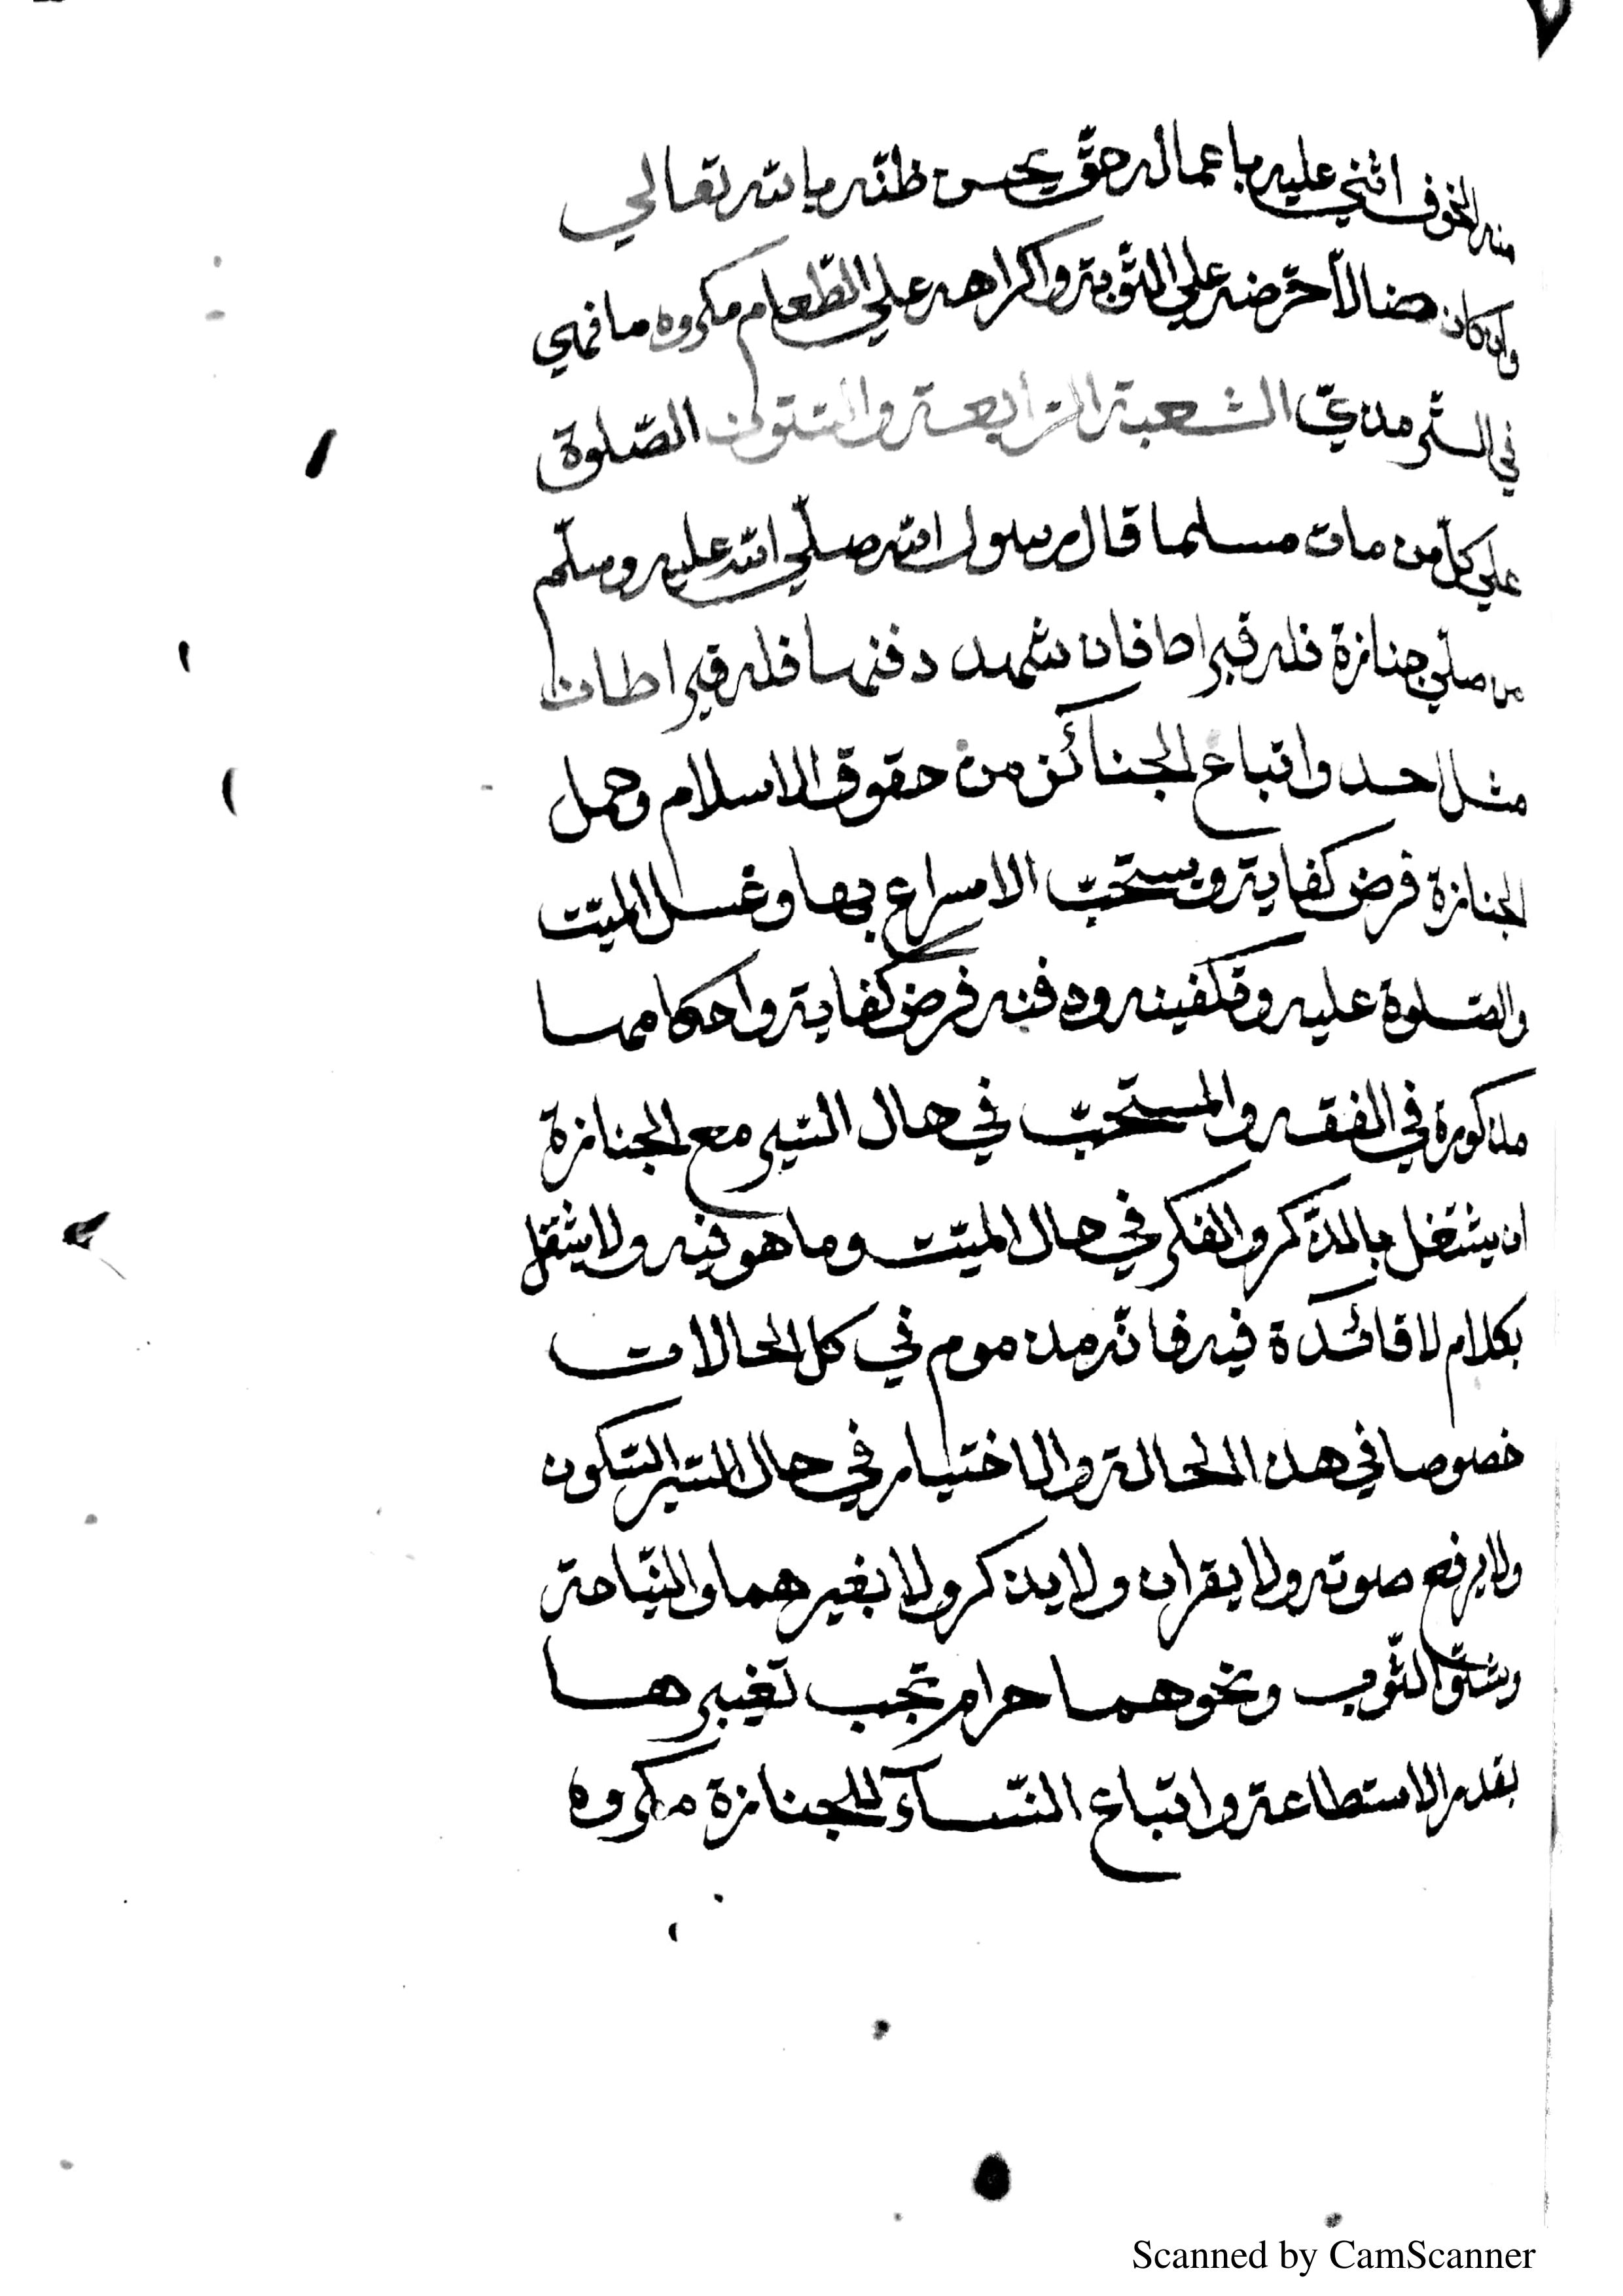 منه الخوف اثني عليه باعماله حتّى يحسن ظنّه بالله تعالي
وان كان ضالاّ حرّضه علي التّوبة واكراهه علي الطّعام مكروه مانهي
في التّرمذيّ الشعبة الرّابعة والستّون الصّلوة
علي كلّ من مات مسلما قال رسول الله صلّي الله عليه وسلّم
من صلّي جنازة فله قيراط فان شهد دفنها فله قيراطان
مثل احد واتباع الجنائز من حقوق الاسلام وحمل
الجنازة فرض كفاية ويستحبّ الاسراع بها وغسل الميّت
والصّلوة عليه وتكفينه ودفنه فرض كفاية واحكامها
مذكورة في الفقه والمستحبّ في حال السّير مع الجنازة
ان يشتغل بالذّكر والفكر في حال الميّت وما هو فيه ولا يشتغل
بكلام لا فائدة فيه فانّه مذموم في كل الحالات
خصوصا في هذا الحالة والاختيار في حال السّير السّكون
ولا يرفع صوته ولا يقران ولا يذكر ولا بغيرهما والنّياحة
وشقّ الثّوب ونحوهما حرام تجب تغييرها
بقدر الاستطاعة واتباع النّسآء للجنازة مكروه
Scanned by CamScanner